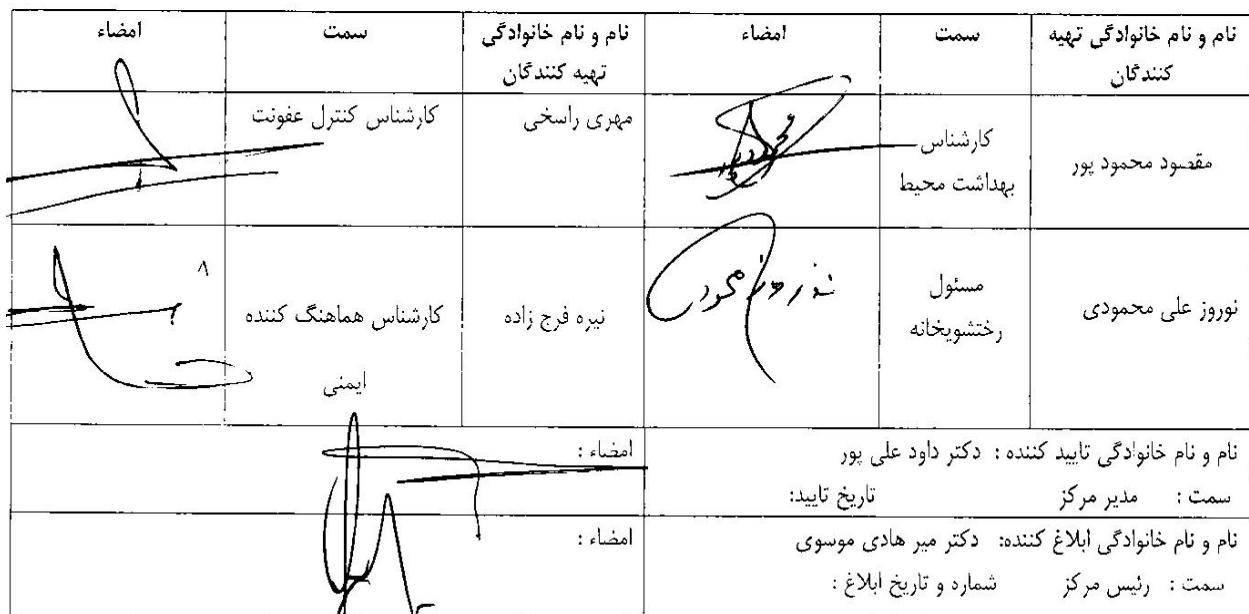 نام و نام خانوادگی تهیه کنندگان
سمت
امضاء
نام و نام خانوادگی تهیه کنندگان
سمت
امضاء
مقصود محمود پور
کارشناس بهداشت محیط
مهری راسخی
کارشناس کنترل عفونت
نوروز علی محمودی
مسئول رختشویخانه
نیره فرج زاده
کارشناس هماهنگ کننده ایمنی
نام و نام خانوادگی تایید کننده : دکتر داود علی پور
امضاء :
سمت : مدیر مرکز تاریخ تایید:
نام و نام خانوادگی ابلاغ کننده: دکتر میر هادی موسوی
امضاء :
سمت : رئیس مرکز شماره و تاریخ ابلاغ :